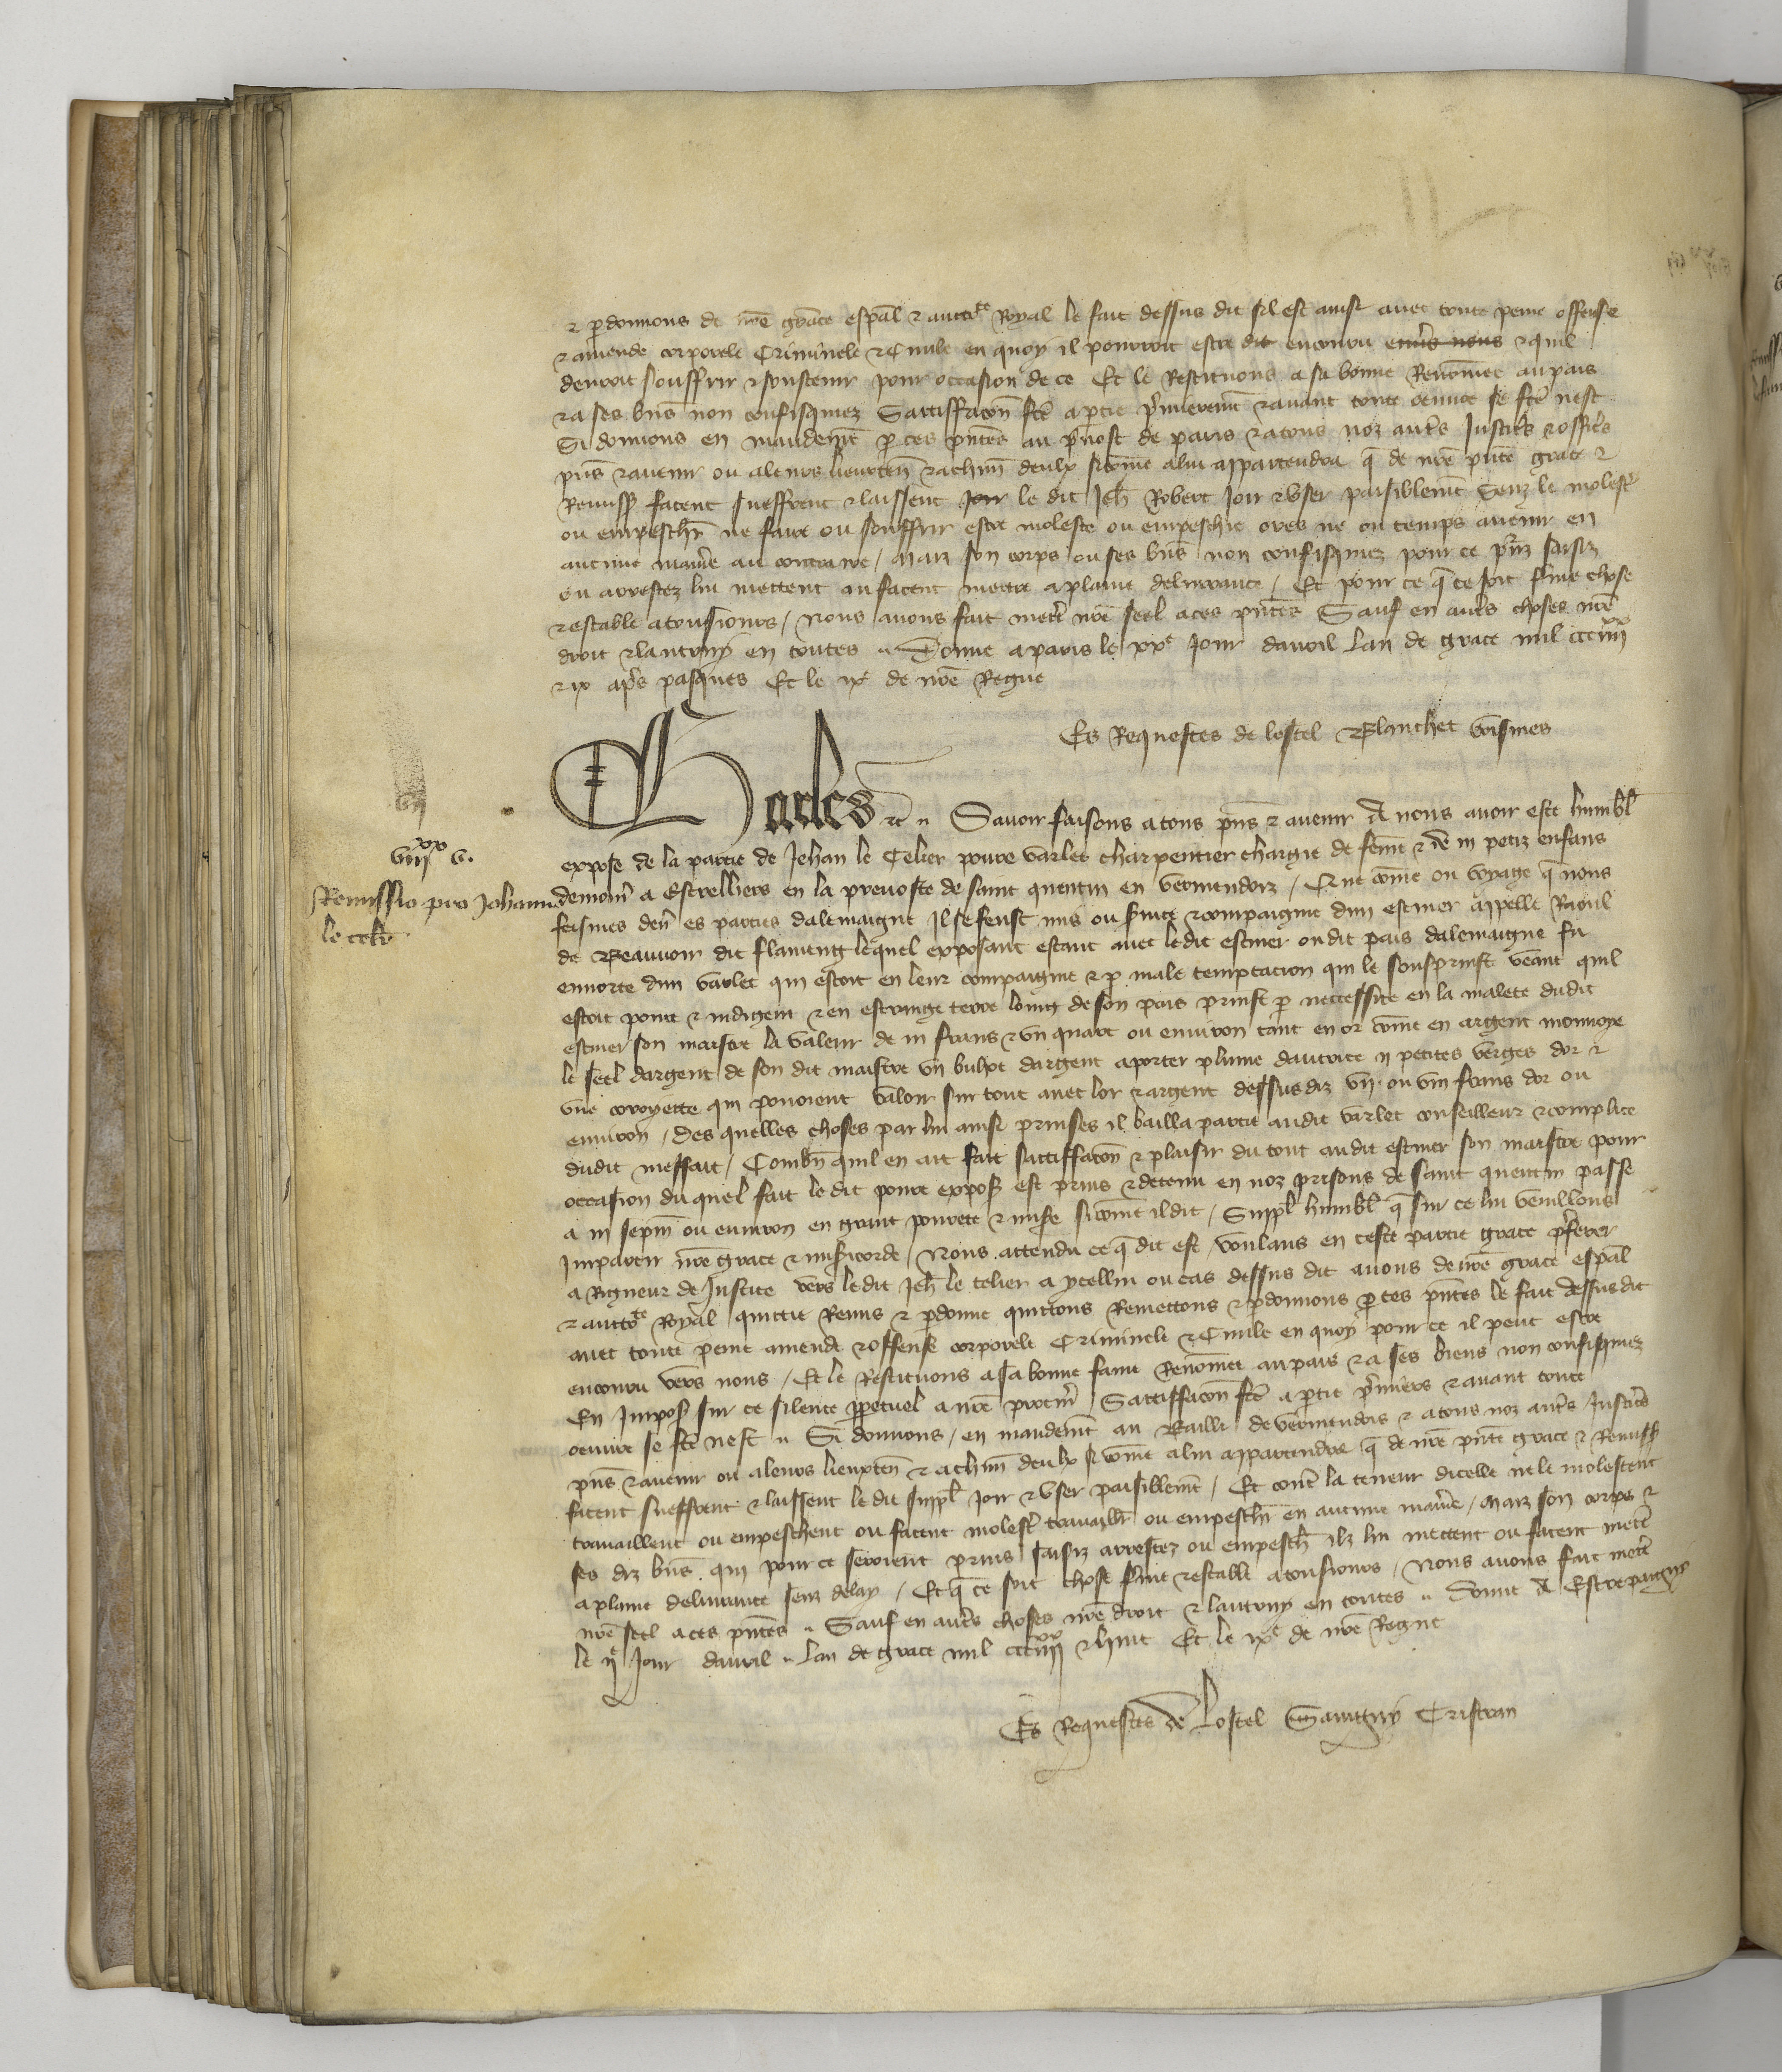 ⁊ p̲donnons de nr̃e grace esp̃al ⁊ auctote Royal le fait dessus dit sil est ainsi auec toute peine offense
⁊ amende corporele Criminele ⁊ Ciuile en quoy il pourroit estre dit encouru enũs nous ⁊ quil
deuroit souffrir ⁊ soustenir pour occasion de ce Et le Restituons a sa bonne Renõmee au pais
⁊ a ses biẽs non confisquiez Sattiffacõn fc̃e a p̲tie p̃mieremẽt ⁊ auant toute euure se fc̃e nest
Si donnons en mandemẽt p̲ ces pñtes au p̃uost de paris ⁊ a tous noz autr̃s Justic̃rs ⁊ offic̃rs
pñs ⁊ auenir ou a leurs lieuxteñ ⁊ a chũn deulx si cõme a lui appartendra q̃ de nr̃e pñte grace ⁊
Remiss̃ facent sueffrent ⁊ laissent Joir le dit Jeh̃ Robert Joir ⁊ vser paisiblemẽt Senz le molest̃
ou empesch̃r ne faire ou souffrir estre moleste ou empeschie ores ne ou temps auenir en
aucune mañe au contraire / Maiz son corps ou ses bñs non confisquiez pour ce p̃ns saisiz
ou arrestez lui mettent ou facent mettre a plaine deliurance / Et pour ce q̃ ce soit ferme chose
⁊ estable a tousiours / nous auons fait mettr̃ nr̃e seel a ces pñtes Sauf en autr̃s choses nr̃e
droit ⁊ lautruy en toutes .. Donne a paris le xxe Jour dauril Lan de grace mil ccc iiiixx
⁊ ix apr̃s pasques Et le ixe de nr̃e Regne
Es Requestes de lostel Blanchet voisines
Charles ⁊c .. Sauoir faisons a tous pñs ⁊ auenir A nous auoir este humbl̃
viiixx v.
Remissio pro Johanne
le telr̃
expose de la partie de Jehan le Telier poure varlet charpentier chargie de femẽ ⁊ de iii petiz enfans
demour̃ a Estreilliers en la preuoste de saint quentin en vermendoiz / Que cõme ou voyage q̃ nous
feismes derr̃ es parties dalemaigne Il se feust mis ou seruice ⁊ compaignie dun escuier appelle Raoul
de Beauuoir dit flameng lequel exposant estant auec ledit escuier ou dit pais dalemaigne fu
ennorte dun varlet qui estoit en leur compaignie ⁊ p̲ male temptacion qui le sousprinst veant quil
estoit poure ⁊ indigent ⁊ en estrange terre loing de son pais prinst p̲ necessite en la malete dudit
escuier son maistre la valeur de iii frans ⁊ vn quart ou enuiron tant en or cõme en argent monnoye
le seel dargent de son dit maistre vn bulxe dargent a porter plume dautrice ii petites verges dor ⁊
vne corroyette qui pouoient valoir sur tout auec lor ⁊ argent dessusdiz vii. ou viii frans dor ou
enuiron / Des quelles choses par lui ainsi prinses il bailla partie audit varlet conseilleur ⁊ complice
dudit meffait / Combñ quil en ait fait sattiffacõn ⁊ plaisir du tout audit escuier son maistre pour
occasion du quel fait le dit poure expos̃ est prins ⁊ detenu en noz prisons de saint quentin passe
a iii sepm̃ ou enuiron en grant pourete ⁊ mis̃e si cõme il dit / Suppl̃ humbl̃ q̃ sur ce lui vueillons
Impartir nr̃e grace ⁊ miscorde / Nous attendu ce q̃ dit est voulans en ceste partie grace p̃ferer
a Rigueur de Justice vers ledit Jeh̃ le telier a ycellui ou cas dessus dit auons de nr̃e grace esp̃al
⁊ auctote Royal quictie Remis ⁊ p̲donne quictons Remettons ⁊ p̲donnons p̲ ces pñtes le fait dessusdit
auec toute peine amende ⁊ offense corporele Criminele ⁊ Ciuile en quoy pour ce il peut estre
encouru vers nous / Et le Restituons a sa bonne fame Renõmee au pais ⁊ a ses biens non confisquiez
En Impos̃ sur ce silence p̲petuel a nr̃e procur̃ Sattiffacõn fc̃e a p̲tie p̃miers ⁊ auant toute
oeuure se fc̃e nest .. Si donnons / en mandemẽt au Bailli de vermendois ⁊ a tous noz autr̃s Justic̃rs
pñs ⁊ auenir ou a leurs lieuxteñ ⁊ a chũn deulx si cõme a lui appartendra q̃ de nr̃e pñte grace ⁊ Remiss̃
facent sueffrent ⁊ laissent le dit suppl̃ Joir ⁊ vser paisiblemẽt / Et contr̃ la teneur dicelle ne le molestent
trauaillent ou empeschent ou facent molestr̃ trauaillr̃ ou empeschr̃ en aucune mañe / Maiz son corps ⁊
ses diz bñs qui pour ce seroient prins saisiz arrestez ou empesch̃ ilz lui mettent ou facent mettr̃
a plaine deliurance senz delay / Et q̃ ce soit chose ferme ⁊ estable a tousiours / Nous auons fait mettr̃
nr̃e seel a ces pñtes .. Sauf en autr̃s choses nr̃e droit ⁊ lautruy en toutes .. Donne A Estrepaigny
le iie Jour dauril .. Lan de grace mil ccc iiiixx ⁊ huit Et le ixe de nr̃e Regne
Es Requestes de Lostel Sauigny Cristran